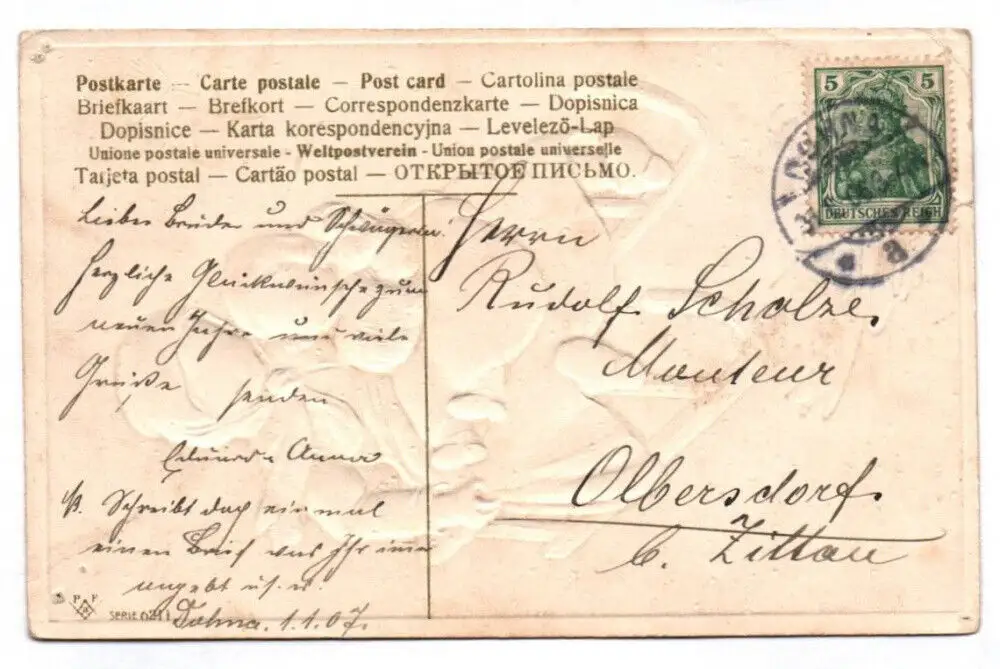 Postkarte — Carte postale — Post card — Cartolina postale
Briefkaart — Brefkort — Correspondenzkarte — Dopisnica
Dopisnice — Karta korespondencyjna — Levelező-Lap
Unione postale universale - Weltpostverein - Union postale universelle
Tarjeta postal — Cartão postal — ОТКРЫТОЕ ПИСЬМО.
5 5
DEUTSCHES REICH
a
Lieber Bruder und Schwägerin.
Herzliche Glückwünsche zum
neuen Jahre und viele
Grüße senden
Eduard & Anna
Schreibt doch einmal
einen Brief was Ihr immer
u. s. w.
Dohna. 1.1.07.
P F
SERIE 6211
Herrn
Rudolf Scholze,
Monteur
Olbersdorf.
b. Zittau